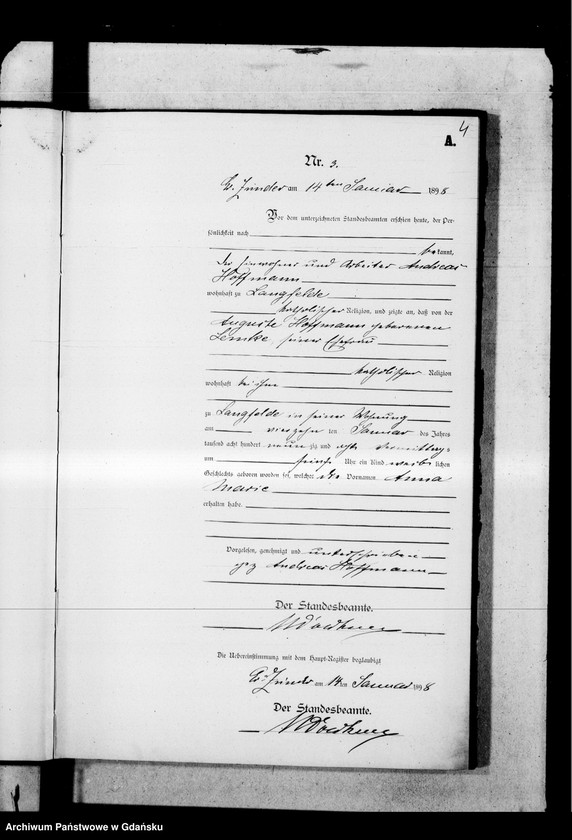 4
A.
Nr. 3.
Gr. Zünder am 14ten Januar 1898
Vor dem unterzeichneten Standesbeamten erschien heute, der Per-
sönlichkeit nach
bekannt,
der Einwohner und Arbeiter Andreas
Hoffmann
wohnhaft zu Langfelde
katholischer Religion, und zeigte an, daß von der
Auguste Hoffmann geborenen
Lemke, seiner Ehefrau
katholischer Religion
wohnhaft bei ihm
zu Langfelde in seiner Wohnung
am vierzehn ten Januar des Jahres
tausend acht hundert neun zig und acht Vormittags
um Uhr ein Kind weib lichen
Geschlechts geboren worden sei, welches die Vornamen Anna
Marie
erhalten habe.
Vorgelesen, genehmigt und unterschrieben
gez Andreas Hoffmann
Der Standesbeamte.
Die Uebereinstimmung mit dem Haupt-Register beglaubigt
Gr. Zünder am 14ten Januar 1898
Der Standesbeamte.
Archiwum Państwowe w Gdańsku